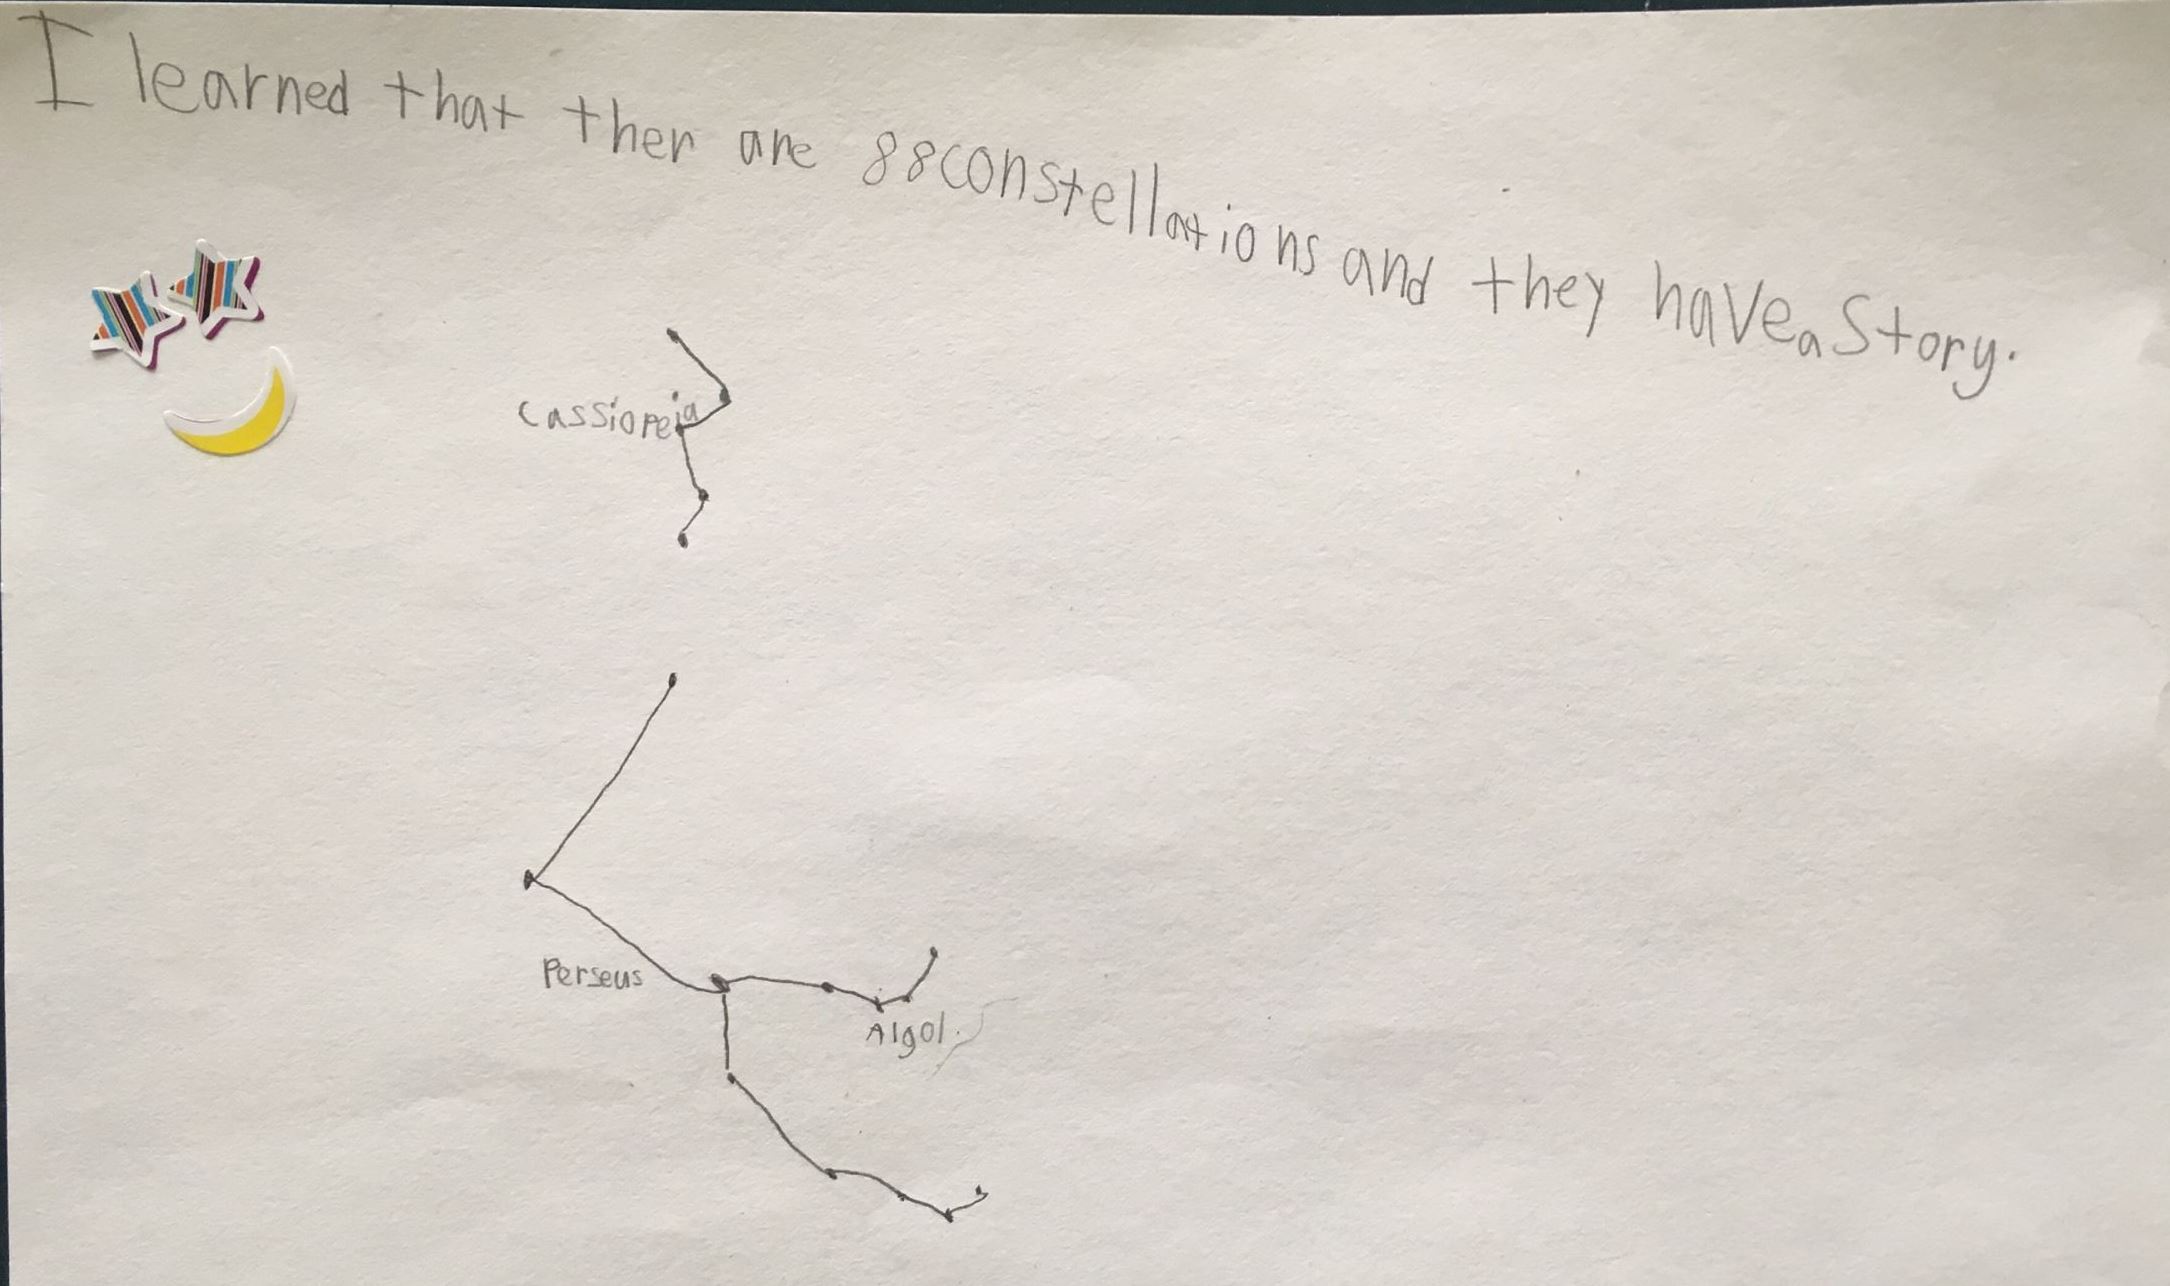 I learned that ther are 88constellations and they have a Story.
Cassiopeia
Perseus
Algol.